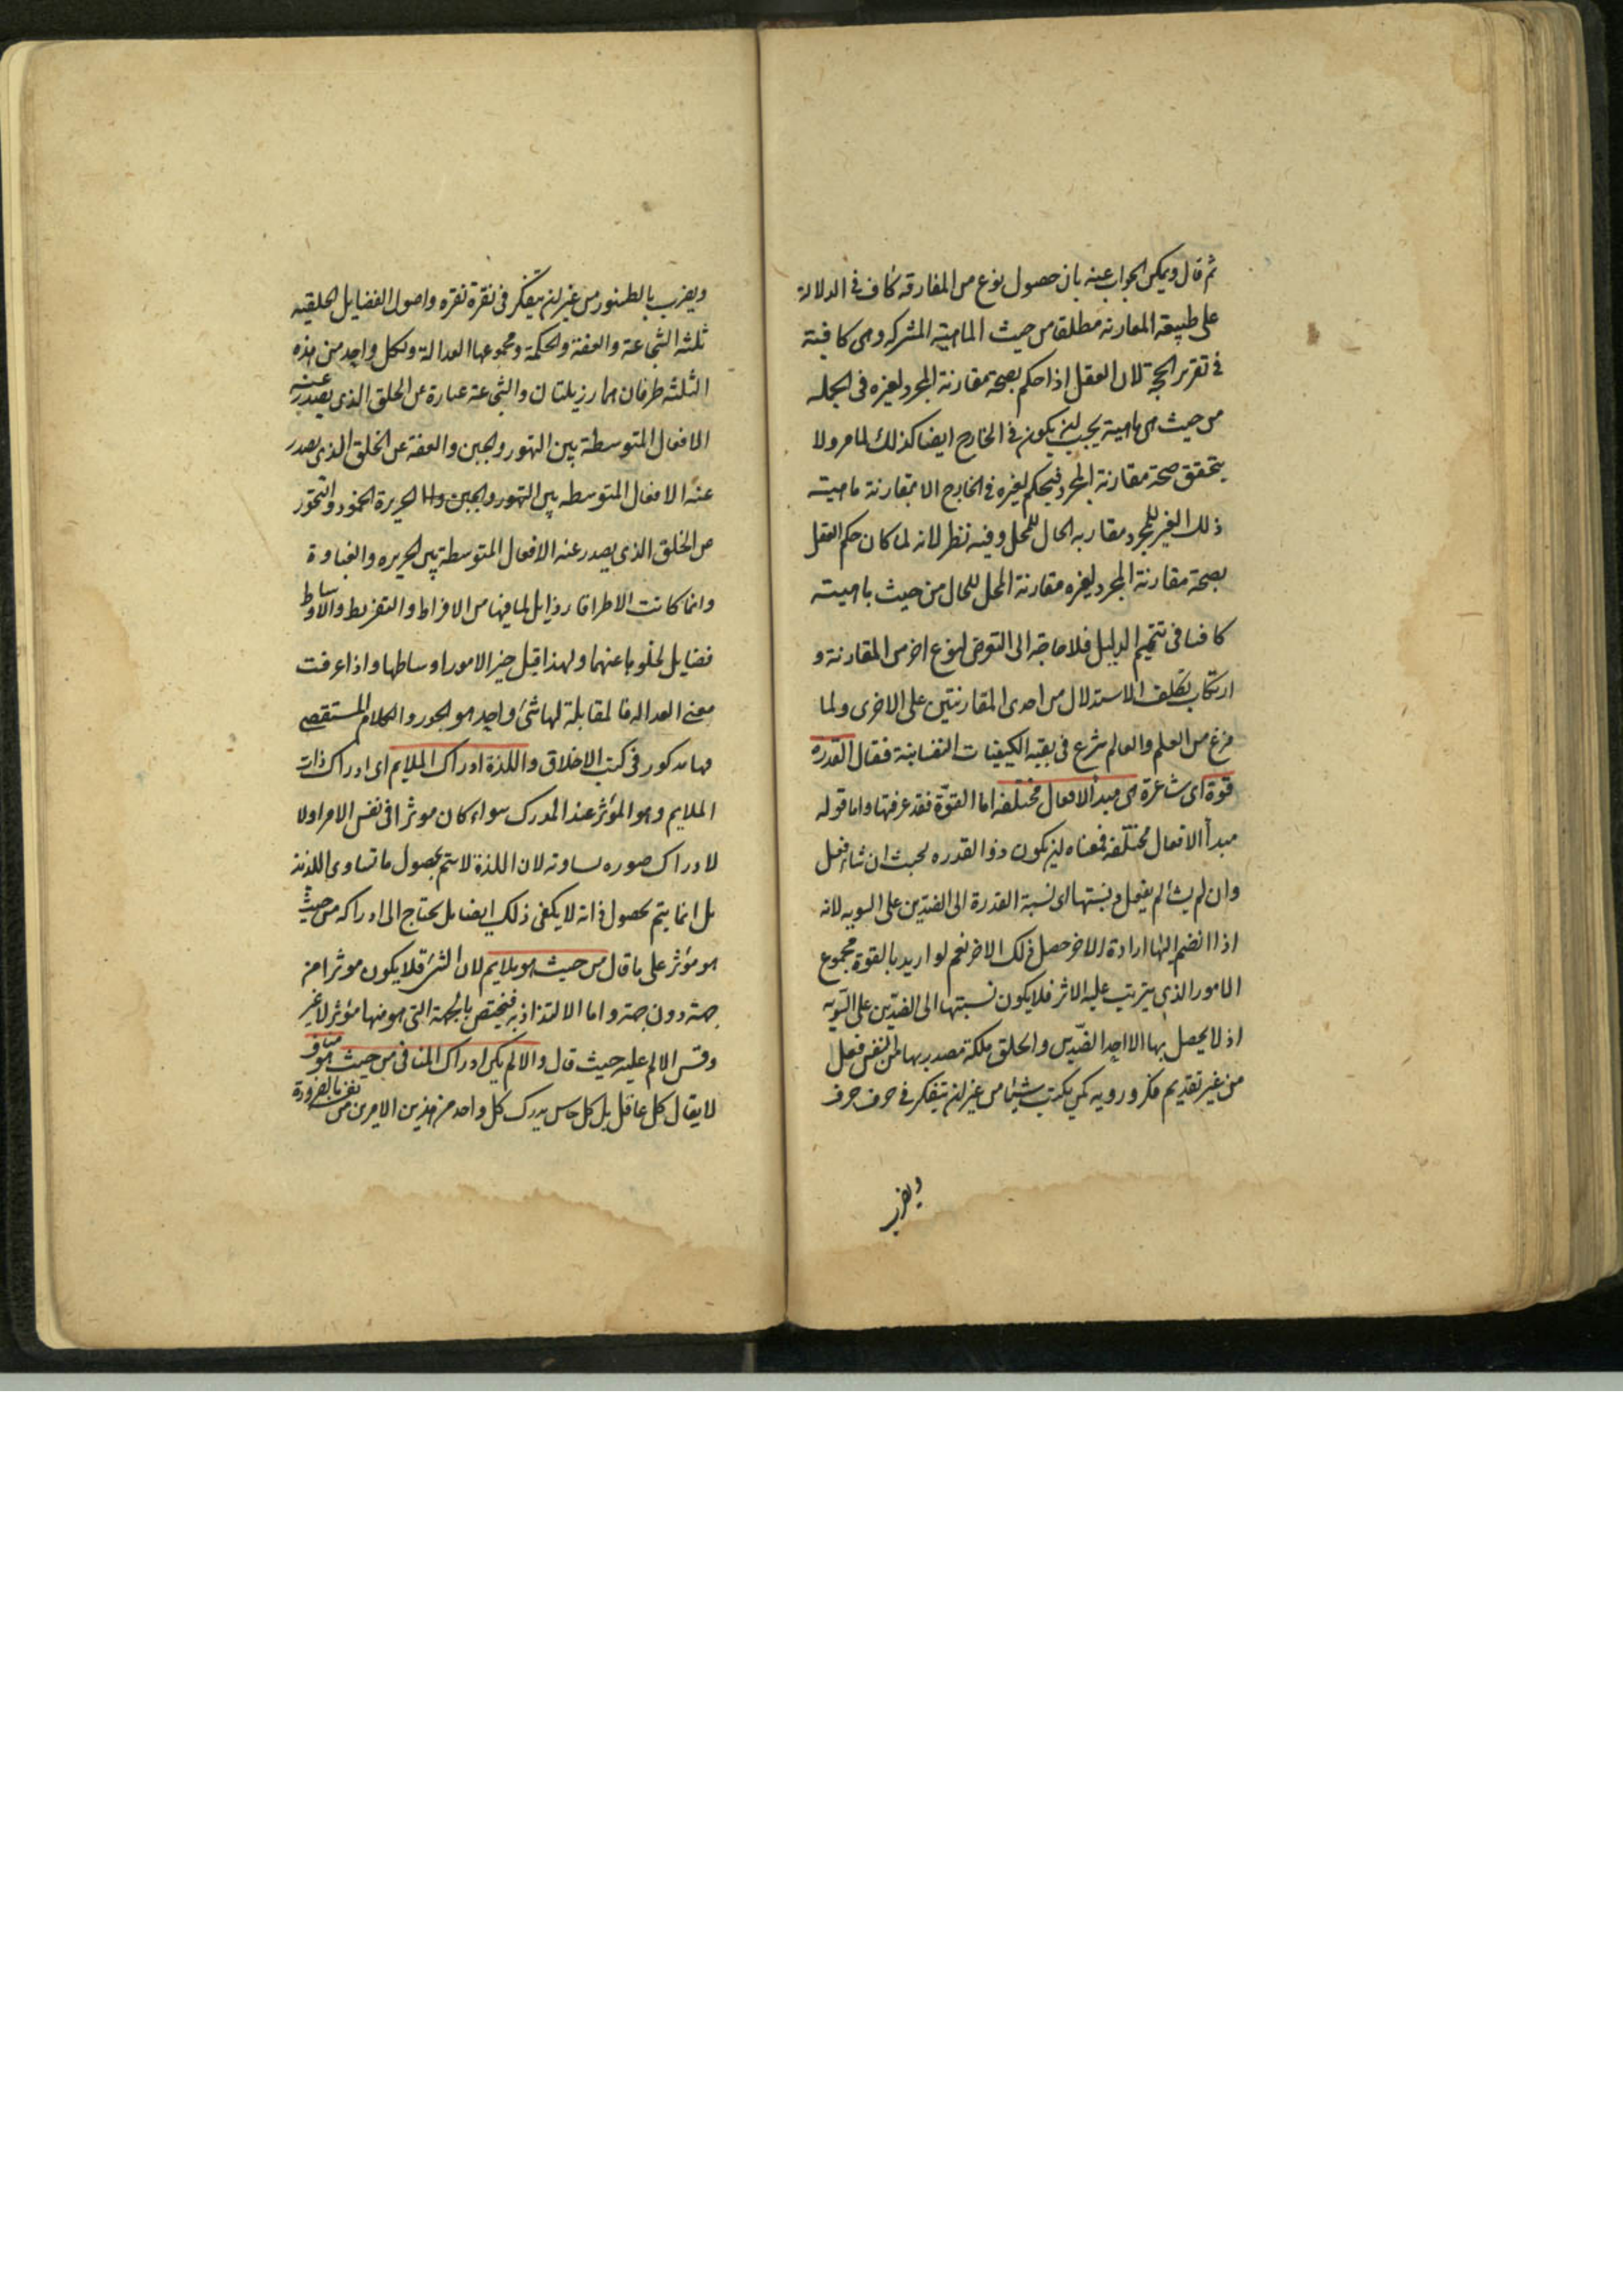 ثم قال ويمكن الجواب عنه بان حصول نوع من المفارقه كاف فى الدلالة
على طبيعة المقارنه مطلقا من حيث الماهية المشتركه وهى كافية
فى تقرير الحجة لان العقل اذا حكم بصحة مقارنة المجرد لغيره فى الجمله
من حيث هى ماهية يجب ان يكون فى الخارج ايضا كذلك لما مر ولا
يتحقق صحة مقارنة المجرد فيحكم لغيره فى الخارج الا بمقارنة ماهيته
ذلك الغير للمجرد مقاربه الحال للمحل وفيه نظر لانه لما كان حكم العقل
بصحة مقارنة المجرد لغيره مقارنة المحل للحال من حيث ماهيته
كافيا فى تتميم الدليل فلا حاجة الى التعرض لنوع اخر من المقارنة و
ارتكاب تكلف الاستدلال من احدى المقارنتين على الاخرى ولما
فرغ من العلم والعالم شرع فى بقيه الكيفيات النفسانية فقال القدره
قوة اى شاعرة هى مبدأ لافعال مختلفه اما القوة فقد عرفتها واما قوله
مبدأ الافعال مختلفه فمعناه ان يكون ذو القدره بحيث ان شاء فعل
وان لم يشألم يفعل ونسبتها اى نسبة القدرة الى الضدين على السويه لانه
اذا انضم اليها ارادة الاخر حصل ذلك الاخر نعم لو اريد بالقوة مجموع
الامور الذى يترتب عليه الاثر فلا يكون نسبتها الى الضدين على السويه
اذ لا يحصل بها الا احد الضدين والخلق ملكة تصدر بها من النفس فعل
من غير تقديم فكر ورويه كمن يكتب شيئا من غير ان يتفكر فى حرف حرف
ويضرب
ويضرب بالطنبور من غير ان يتفكر فى نقرة نقره واصول الفضايل الخلقيه
ثلثه الشجاعة والعفة والحكمة ومجموعها العدالة ولكل واحد من هذه
الثلثه طرفان هما رزيلتان والشجاعة عبارة عن الخلق الذى يصدر عنه
الافعال المتوسطة بين التهور والجبن والعفة عن الخلق الذى يصدر
عنه الافعال المتوسطه بين التهور والجبن والحريرة الخمود والتحور
هى الخلق الذى يصدر عنه الافعال المتوسطة بين الجريره والغباوة
وانما كانت الاطراف رذايل لما فيها من الافراط والتفريط والاوساط
فضايل لخلوها عنهما ولهذا قيل خير الامور اوساطها واذا عرفت
معنى العداله فالمقابلة لها شئ واحد هو الجور والكلام المستقصى
فيها مذكور فى كتب الاخلاق واللذة ادراك الملايم اى ادراك ذات
الملايم وهو المؤثر عند المدرك سواء كان موثرا فى نفس الامر اولا
لا ادراك صوره تساويه لان اللذة لا يتم بحصول ما تساوى اللذيذ
بل انما يتم بحصول ذاته لا يكفى ذلك ايضا بل يحتاج الى ادراكه من حيث
هو مؤثر على ما قال من حيث هو ملايم لان الشئ قد يكون موثرا من
جهة دون جهة واما الالتذاذ به فيختص بالجهة التى هو منها مؤثر لا غير
وقس الالم عليه حيث قال والالم يكن ادراك المنافى من حيث هو مناف
لا يقال كل عاقل بل كل حاس يدرك كل واحد من هذين الامرين من نفسه بالضرورة